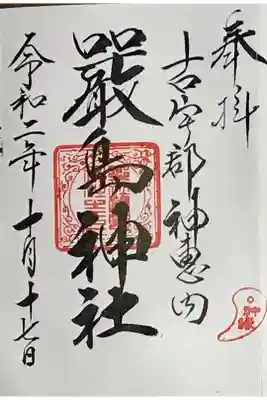 奉拝
古宇郡神恵内
嚴島神社
令和二年十月十七日